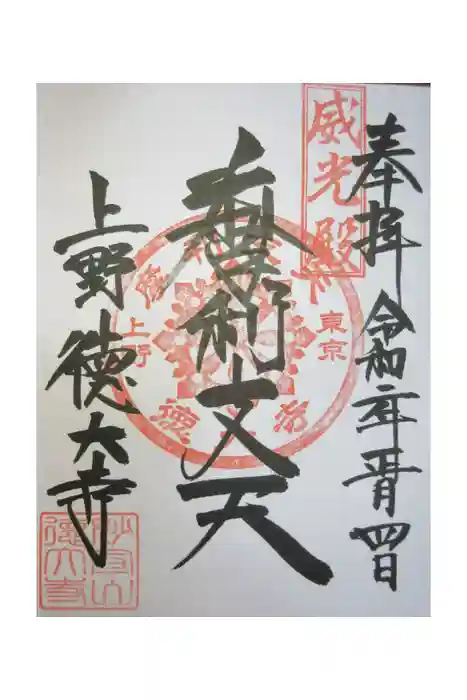 威光殿
奉拝
令和
四日
摩利支天
東京
上野
徳大寺
上野徳大寺
妙宣山
徳大寺